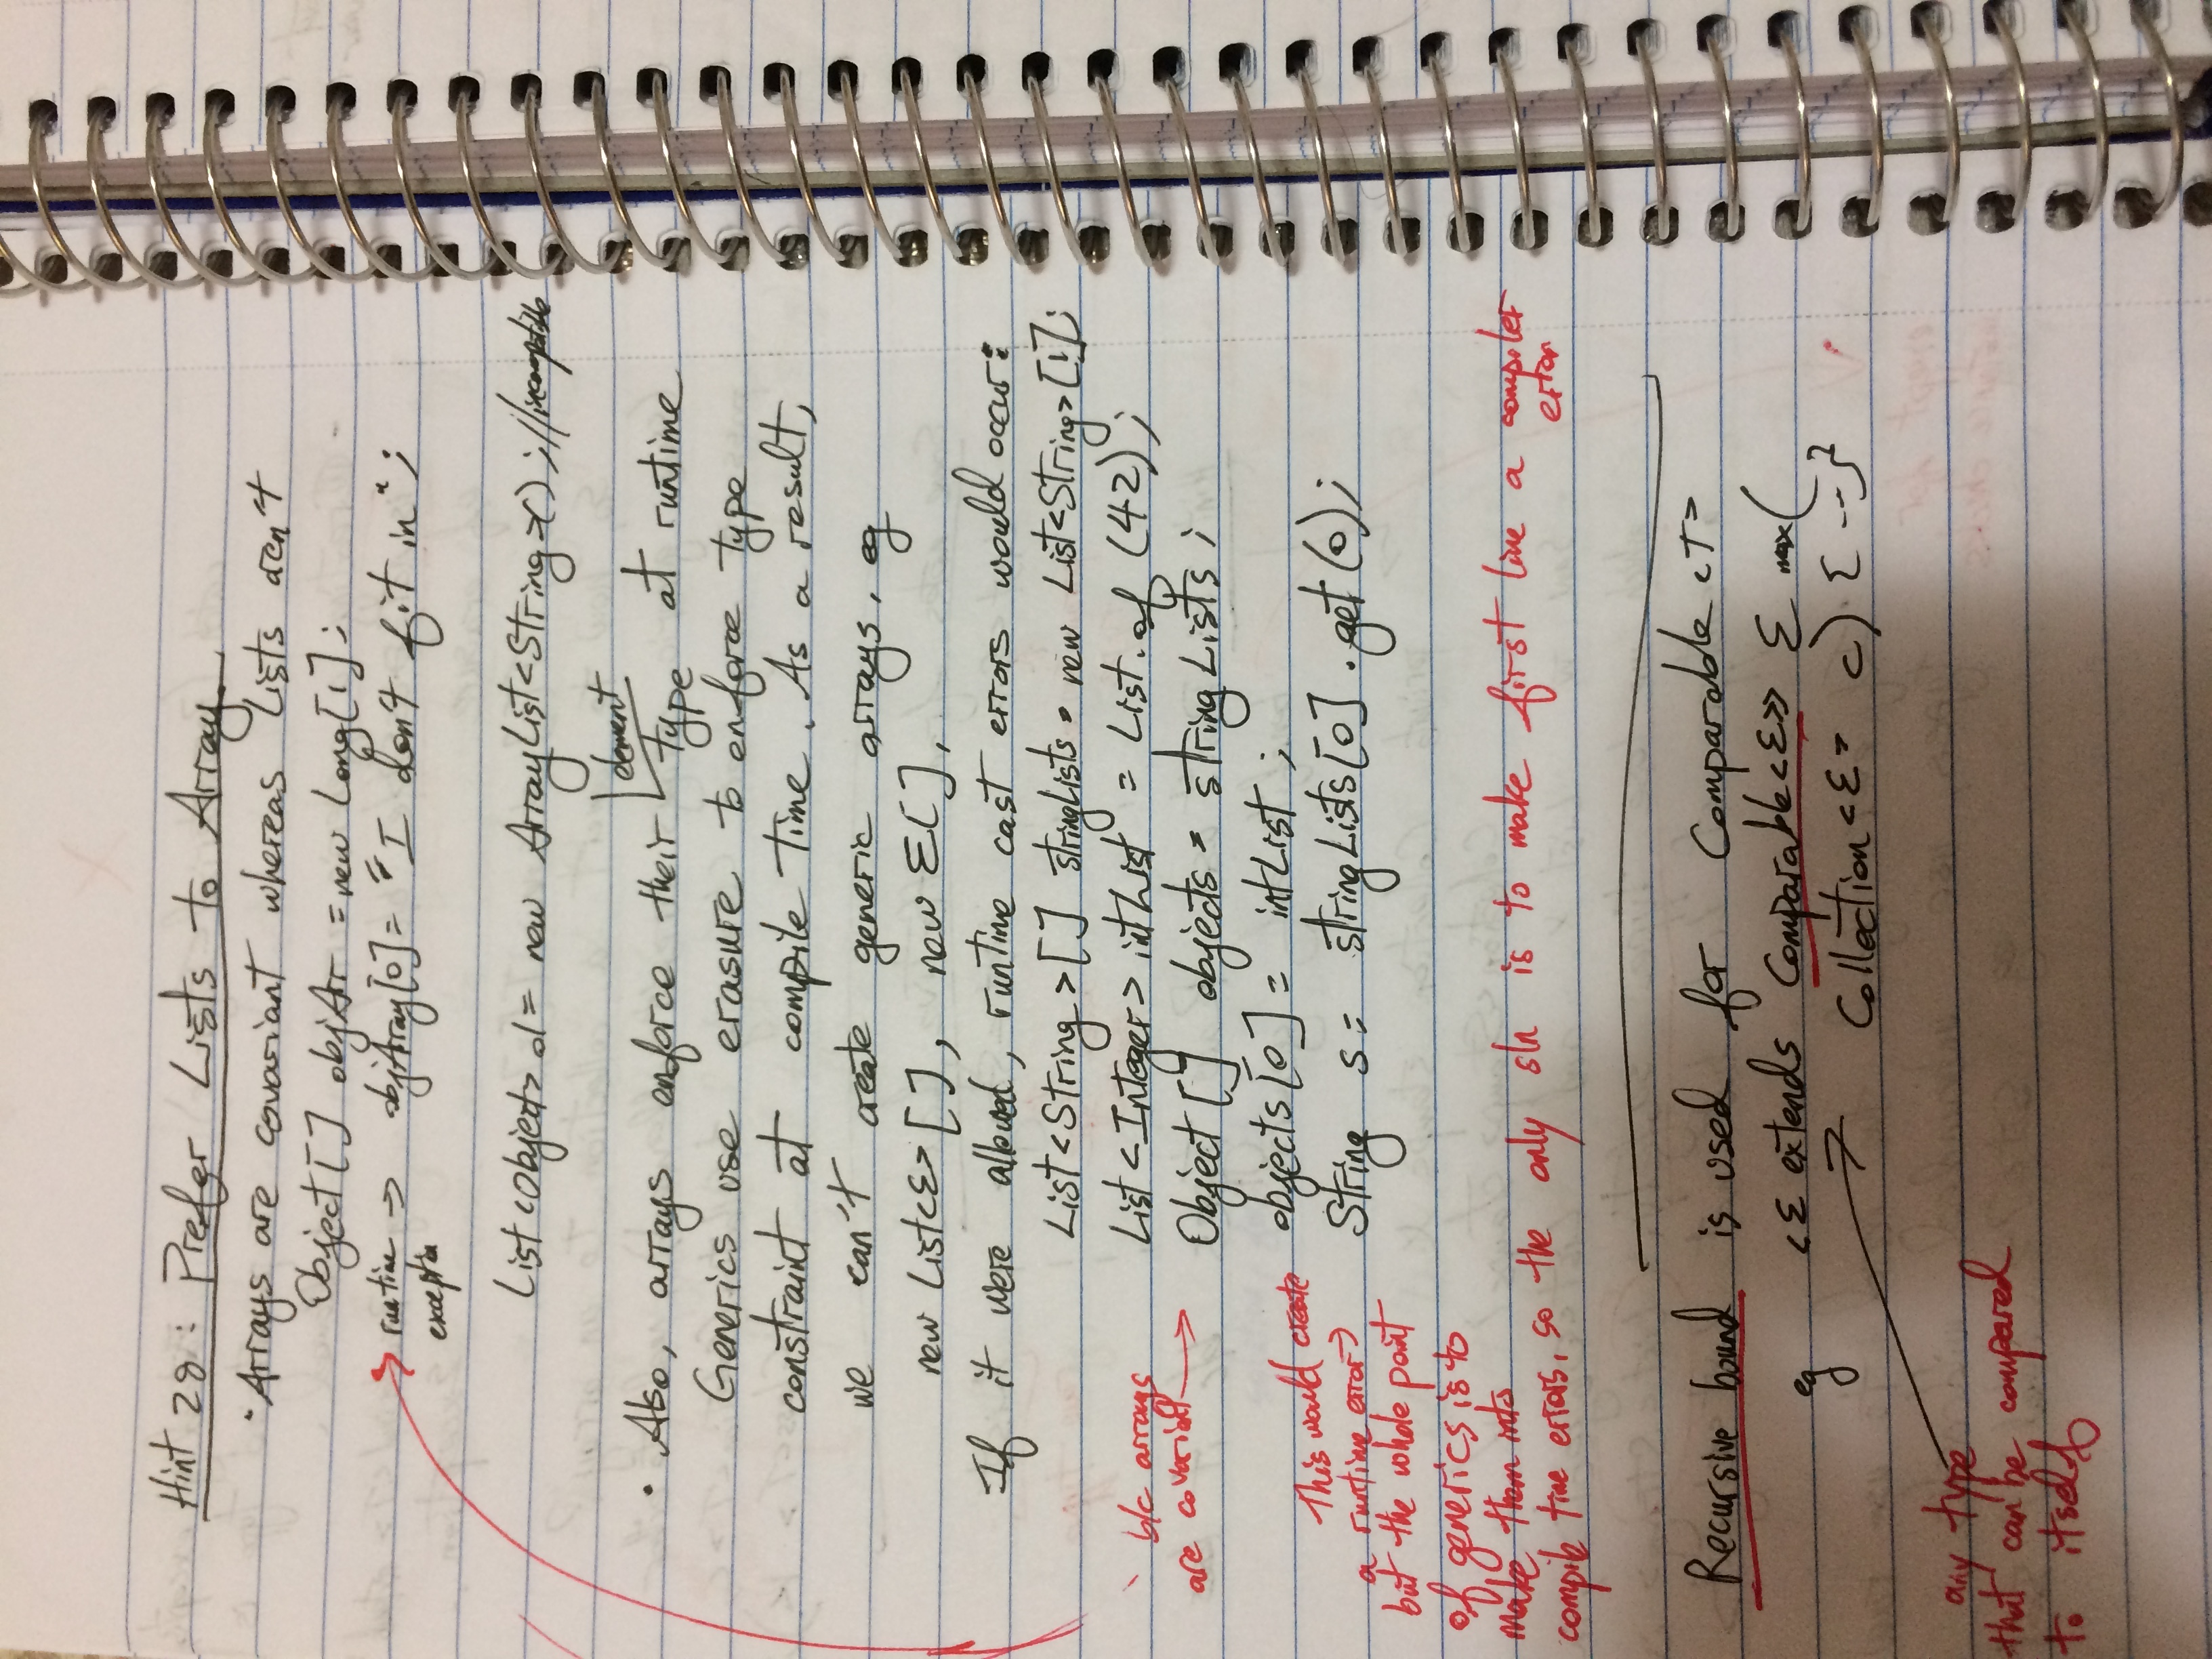 Hint 28: Prefer Lists to Array
• Arrays are covariant whereas Lists aren't
Object[] objArr = new Long[1];
runtime → objArray[0] = "I don't fit in";
exception
List<Object> ol = new ArrayList<String>(); //incompatible
element
• Also, arrays enforce their type at runtime
Generics use erasure to enforce type
constraint at compile time. As a result,
we can't create generic arrays, eg
new List<E>[], new E[],
If it were allowed, runtime cast errors would occur:
List<String>[] stringLists = new List<String>[1];
List<Integer> intList = List.of (42);
b/c arrays
are covariant →
Object[] objects = stringLists;
objects[0] = intList;
String s = stringLists[0].get(0);
This would create
a runtime error →
but the whole point
of generics is to
make them into
compile time errors, so the only sln is to make first line a compiler
error
Recursive bound is used for Comparable <T>
eg <E extends Comparable<E>> E max(
Collection<E> c) { -- }
any type
that can be compared
to itself